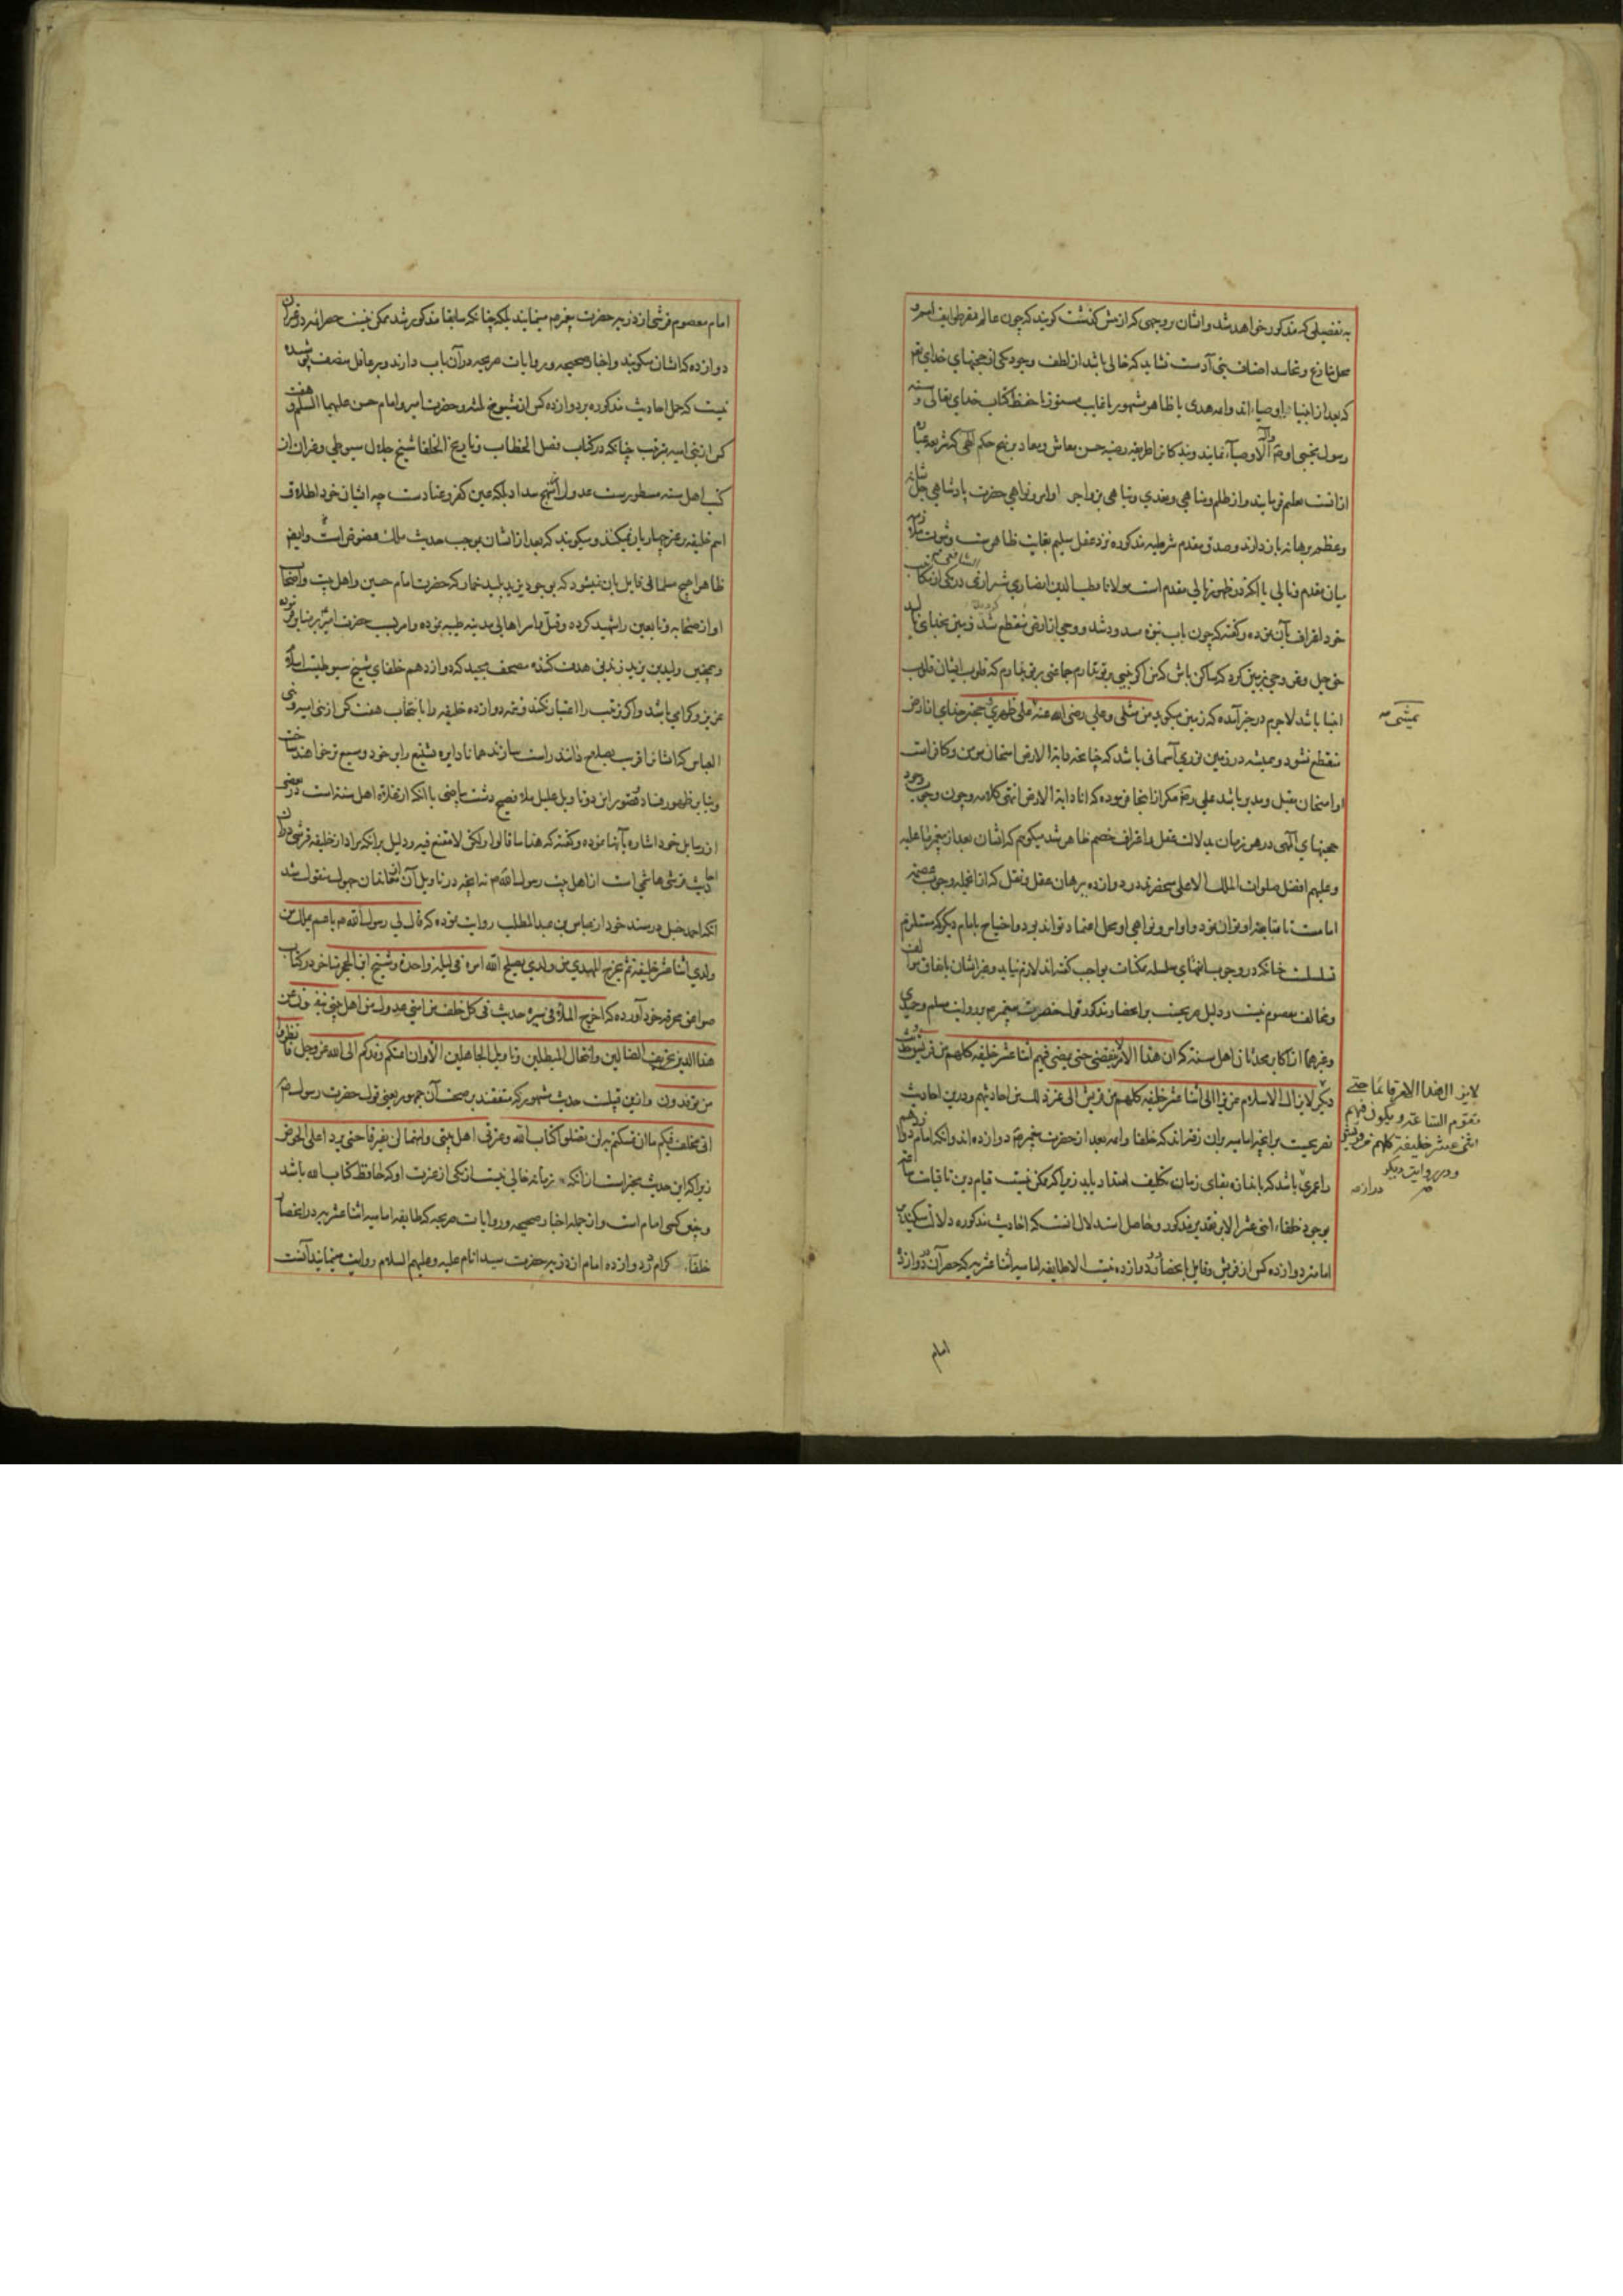 به تفصیلی که مذکور خواهد شد و ایشان بر وجهی که از پیش گذشت گویند که چون عالم
محل تنازع و تحاسد اصناف بنی آدمست نشاید که خالی باشد از لطف وجود یکی از حجتهای خدای
که بعد از انبیا اوصیاء اند و ائمه هدی یا ظاهر مشهور یا غایب مستور تا حفظ کتاب خدای تعالی و سنة
رسول مجتبی او نمایند و بندگان را طریقه حسن معاش و معاد بر نهج حکم الهی
تعلیم فرمایند و از ظلم و تناهی و تعدی و تباهی بزواجر اوامر و نواهی حضرت پادشاهی جل شانه
و عظم برهانه باز دارند و صدق مقدم شرطیه مذکوره نزد عقل سلیم بغایت ظاهرست
میان مقدم و تالی با آنکه در ظهور تالی مقدم است مولانا قطب الدین انصاری شیرازی شافعی در یکی از کتب
خود اعتراف بآن نموده و گفته که چون باب نبوة مسدود شد و وحی از ارض منقطع شد زمین بخدای نالید
حق جل وعلا وحی بزمین کرد که ساکن باش که من اگر نبیی بر تو نیارم جماعتی بر تو بیارم که قلوب ایشان قلوب
انبیا باشد لاجرم در خبر آمده که زمین میگوید من مثلی و علی رضی الله عنه علی ظهری حجتهای خدای از ارض
منقطع نشود و همیشه در زمین نوری آسمانی باشد که چنانچه دابة الارض امتحان مومن و کافر است
او امتحان مقبل و مدبر باشد علی مکرر از اینجا فرموده که انا دابة الارض انتهی کلامه و چون وجود
حجتهای الهی در هر زمان بدلالت عقل و اعتراف خصم ظاهر شد میگویم که ایشان بعد از پیغمبر ما علیه
و علیهم افضل صلوات الملک الاعلی منحصرند در دوازده ببرهان عقل و نقل که از آنجمله وجوب عصمة
امامست تا متابعت او توان نمود و اوامر و نواهی او محل اعتماد تواند بود و احتیاج بامام دیگر که مستلزم
تسلسلست چنانکه در وجوب انتهای سلسله ممکنات بواجب گفته اند لازم نیاید و غیر ایشان باتفاق موالف
و مخالف معصوم نیست و دلیل صریحست بر انحصار مذکور قول حضرت پیغمبر بروایت مسلم و حمیدی
و غیرهما از اکابر محدثان اهل سنة که ان هذا الامر لا ینقضی حتی یمضی فیهم اثنا عشر خلیفه کلهم من قریش
دیگر لایزال الاسلام عزیزا الی اثنا عشر خلیفه کلهم من قریش الی غیر ذلک من احادیثهم و درین احادیث
تصریحست بر آنچه امامیه بران رفته اند که خلفا و ائمه بعد از حضرت پیغمبر دوازده اند و آنکه امام دوازدهم
را عمری باشد که باندازه بقای زمان تکلیف امتداد یابد زیرا که ممکن نیست قیام دین تا قیامت
بوجود خلفاء اثنی عشر الا بر تقدیر مذکور و حاصل استدلال آنست که احادیث مذکوره دلالت میکند بر
امامت دوازده کس از قریش و قایل بانحصار در دوازده نیست الا طایفه امامیه اثنا عشریه که حصر آن در دوازده
نمیشی صه
لایزال هذا الامر قائما حتی
تقوم الساعة و یکون فیهم
اثنی عشر خلیفة کلهم من قریش
و در روایت دیگر
امام
امام معصوم قرشی از ذریه حضرت پیغمبر مینمایند بلکه چنانکه سابقا مذکور شد ممکن نیست حصر ائمه در غیر آن
دوازده که ایشان میگویند و اخبار صحیحه و روایات صریحه در آن باب دارند و بر عاقل منصف پوشیده
نیست که حمل احادیث مذکوره بر دوازده کس از شیوخ ثلثه و حضرت امیر و امام حسن علیهما السلم و هفت
کس از بنی امیه بترتیب چنانکه در کتاب فصل الخطاب و تاریخ الخلفا شیخ جلال سیوطی و غیر آن از
کتب اهل سنه مسطورست عدول از نهج سداد بلکه عین کفر و عنادست چه ایشان خود اطلاق
اسم خلیفه بر غیر چهار یار نمیکنند و میگویند که بعد از ایشان بموجب حدیث ملک عضوض است و ایضا
ظاهرا هیچ مسلمانی قایل بان نمیشود که بوجود یزید پلید خمار که حضرت امام حسین و اهل بیت و اصحاب
او از صحابه و تابعین را شهید کرده و قتل عام اهالی مدینه طیبه نموده و امر بسب حضرت امیر بر منابر فرموده
و همچنین ولید بن یزید زندیق هدف کننده مصحف مجید که دوازدهم خلفای شیخ سیوطیست اسلام
عزیز و گرامی باشد و اگر ترتیب را اعتبار نکنند و تتمه دوازده خلیفه را بانتخاب هفت کس از بنی امیه و بنی
العباس که ایشانرا اقرب بصلاح دانند راست سازند همانا دایره تشنیع را بر خود وسیع تر خواهند ساخت
و بنا بر ظهور فساد و قصور این دو تاویل علیل ملا فصیح دشت بیاضی با آنکه از غلاة اهل سنة است در بعضی
از رسایل خود اشاره بآنها نموده و گفته که هذا ما قالوا ولکن لا مقنع فیه و دلیل بر آنکه مراد از خلیفه قرشی در آن
احادیث قرشی هاشمی است از اهل بیت رسول الله نه آنچه در تاویل آن از مخالفان جهول منقول شد
آنکه احمد حنبل در مسند خود از عباس بن عبد المطلب روایت نموده که قال لی رسول الله یا عم یملک من
ولدی اثنا عشر خلیفة ثم یخرج المهدی من ولدی یصلح الله امره فی لیلة واحدة و شیخ ابن الحجر متاخر در کتاب
صواعق محرقه خود آورده که اخرج الملا فی سیرة حدیث فی کل خلف من امتی عدول من اهل بیتی ینفون عن
هذا الدین تحریف الضالین و انتحال المبطلین و تاویل الجاهلین الا و ان ائمتکم وفدکم الی الله عز وجل فانظروا
من توفدون و ازین قبیلست حدیث مشهور که متفقند بر صحت آن جمهور یعنی قول حضرت رسول
انی مخلف فیکم ما ان تمسکتم به لن تضلوا کتاب الله و عترتی اهل بیتی و انهما لن یفترقا حتی یردا علی الحوض
زیرا که این حدیث مخبر است از آنکه زمانه خالی نیست از یکی از عترت او که حافظ کتاب الله باشد
و چنین کسی امام است و از جمله اخبار صحیحه و روایات صریحه که طایفه امامیه اثنا عشریه در انحصار
خلفاء کرام در دوازده امام از ذریه حضرت سید انام علیه و علیهم السلام روایت مینمایند آنست